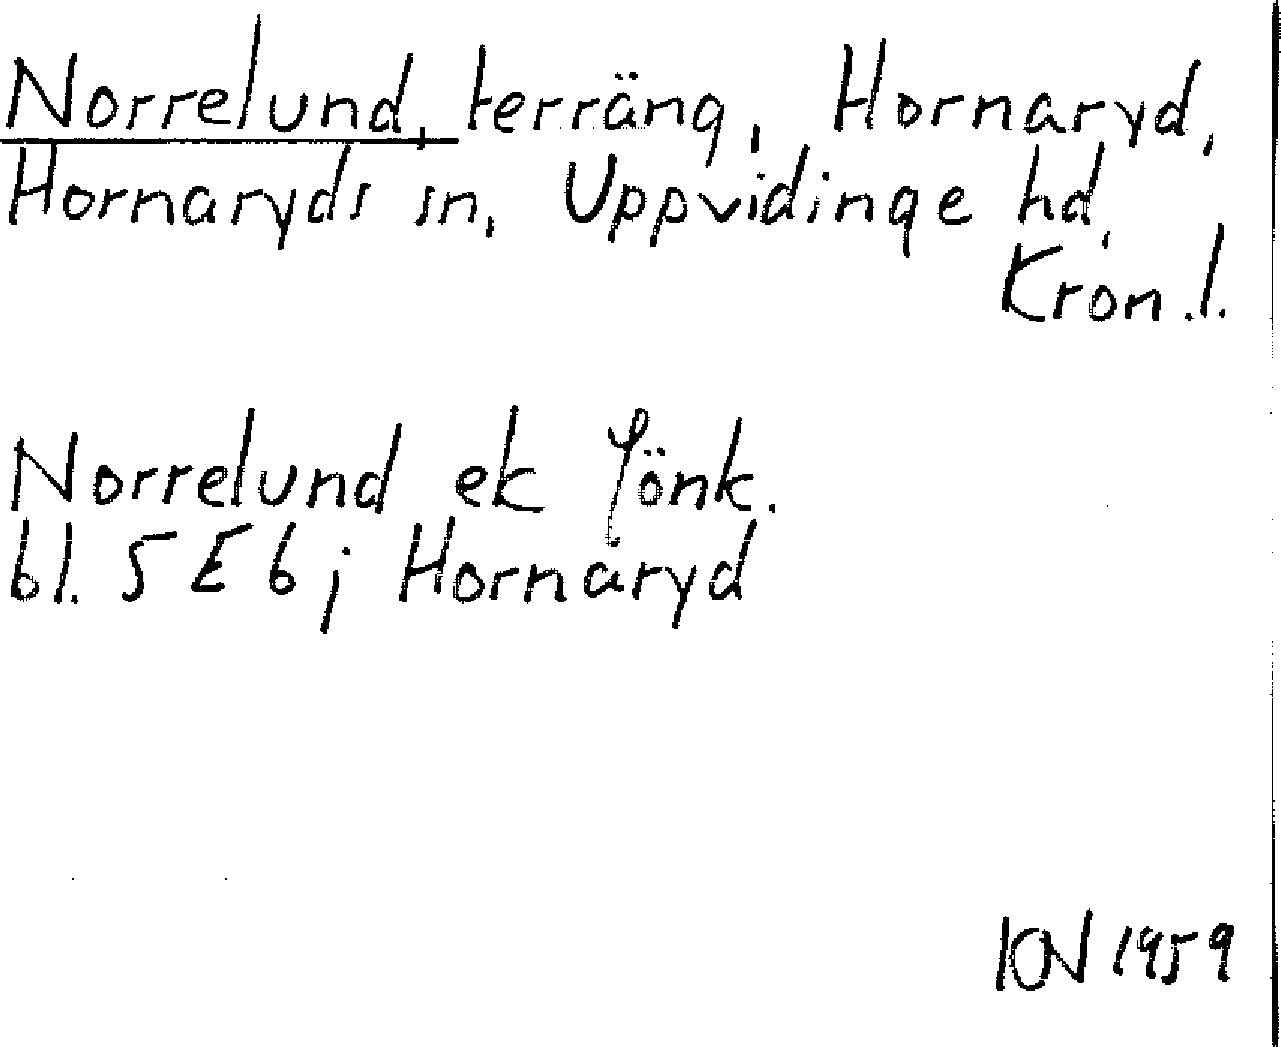 Norrelund, terräng, Hornaryd,
Hornaryds sn, Uppvidinge hd,
Kron.l.
Norrelund ek Jönk.
bl. 5 E 6 j Hornaryd
ION 1959